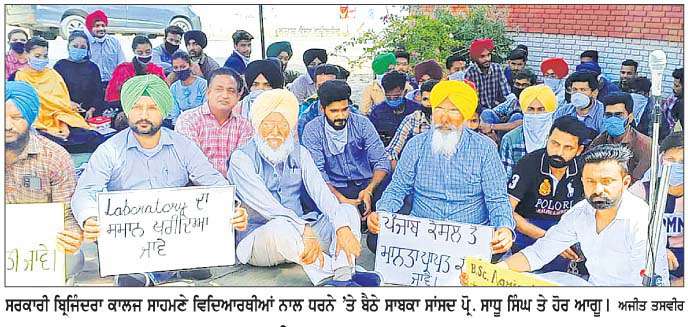 Laboratory ਦਾ
ਸਮਾਨ ਖਰੀਦਿਆ
ਜਾਵੇ
ਜਾਵੇ।
ਪੰਜਾਬ ਕੌਂਸਲ ਤੋਂ
ਮਾਨਤਾ ਪ੍ਰਾਪਤ
ਜਾਵੇ।
B.Sc.
POLO
ਸਰਕਾਰੀ ਬ੍ਰਿਜਿੰਦਰਾ ਕਾਲਜ ਸਾਹਮਣੇ ਵਿਦਿਆਰਥੀਆਂ ਨਾਲ ਧਰਨੇ 'ਤੇ ਬੈਠੇ ਸਾਬਕਾ ਸਾਂਸਦ ਪ੍ਰੋ. ਸਾਧੂ ਸਿੰਘ ਤੇ ਹੋਰ ਆਗੂ। ਅਜੀਤ ਤਸਵੀਰ